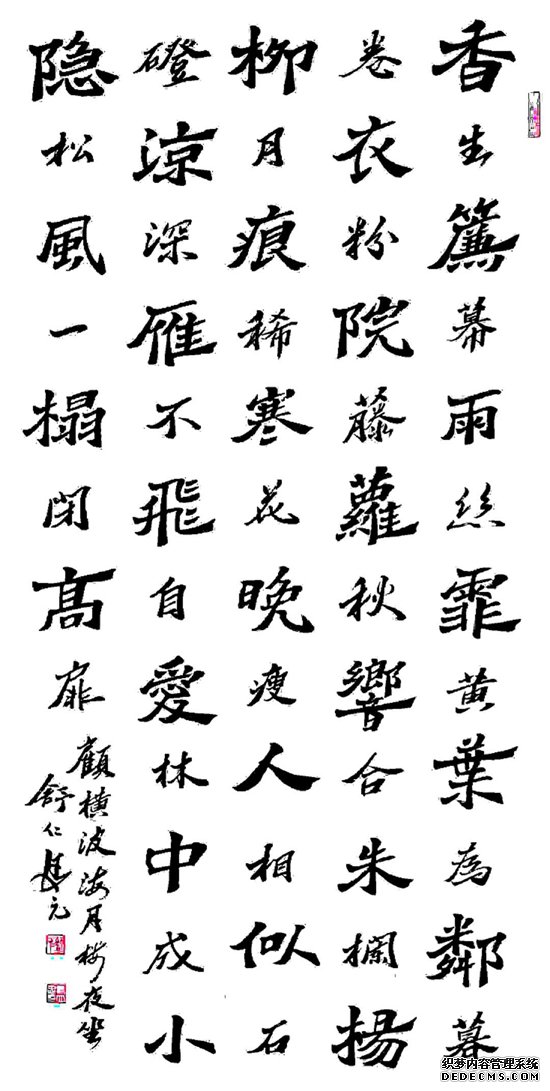 香生簾幕雨絲霏黃葉為鄰暮
卷衣粉院藤蘿秋響合朱欄揚
柳月痕稀寒花晚瘦人相似石
磴涼深雁不飛自愛林中成小
隐松風一榻閉髙扉
顧橫波海月樓夜坐
舒仁元
织梦内容管理系统
DEDECMS.COM